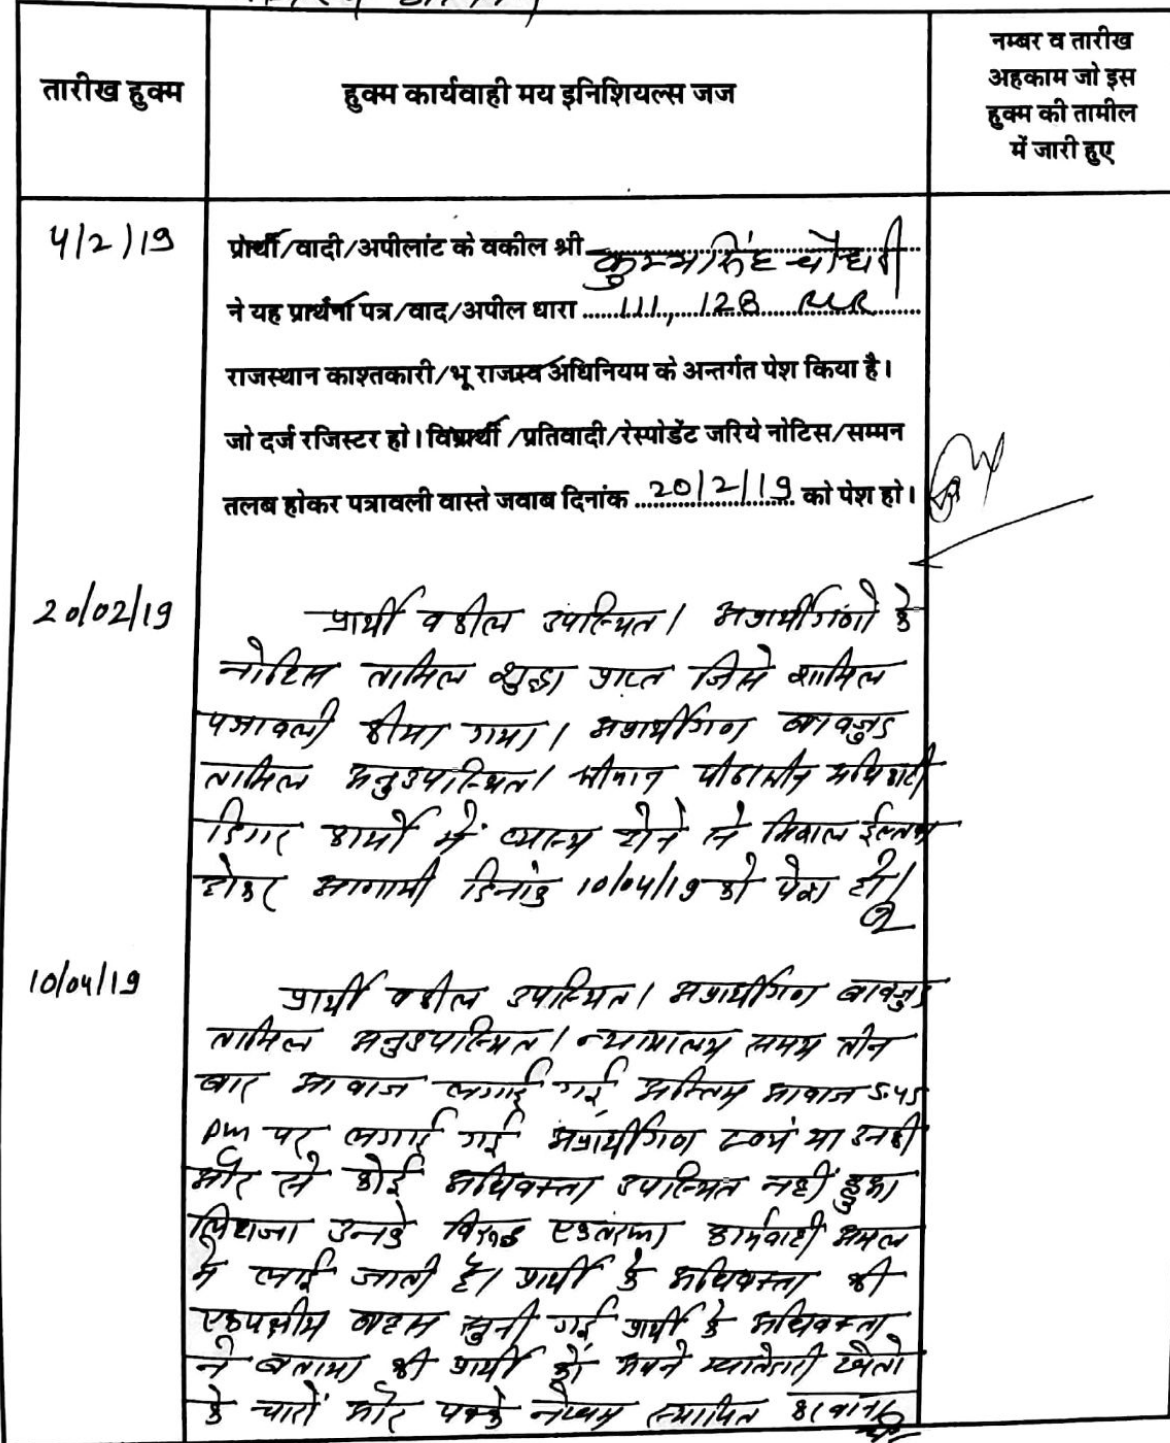 तारीख हुक्म
हुक्म कार्यवाही मय इनिशियल्स जज
नम्बर व तारीख
अहकाम जो इस
हुक्म की तामील
में जारी हुए
4/2/19
प्रार्थी/वादी/अपीलांट के वकील श्री कुम्भसिंह चौधरी
ने यह प्रार्थना पत्र/वाद/अपील धारा ......111, 128 RLR......
राजस्थान काश्तकारी/भू राजस्व अधिनियम के अन्तर्गत पेश किया है।
जो दर्ज रजिस्टर हो। विप्रार्थी/प्रतिवादी/रेस्पोडेंट जरिये नोटिस/सम्मन
तलब होकर पत्रावली वास्ते जवाब दिनांक ..20/2/19.. को पेश हो।
20/02/19
प्रार्थी वकील उपस्थित। अप्रार्थीगणों के
नोटिस तामिल शुद्धा प्राप्त जिसे शामिल
पत्रावली कीया गया। अप्रार्थीगण बावजुद
तामिल अनुउपस्थित। श्रीमान पीठासीन अधिकारी
डिगर कार्यो में व्यस्थ होने से
होकर आगामी दिनांक 10/04/19 को पेश हो।
10/04/19
प्रार्थी वकील उपस्थित। अप्रार्थीगण बावजुद
तामिल अनुउपस्थित। न्यायालय समय तीन
बार आवाज लगाई गई अन्तिम आवाज 5.45
pm पर लगाई गई अप्रार्थीगण स्वयं या उनकी
और से कोई अधिवक्ता उपस्थित नहीं हुआ
लिहाजा उनके विरूद्ध एकतरफा कार्यवाही अमल
में लाई जाती है। प्रार्थी के अधिवक्ता की
एकपक्षीय बहस सुनी गई प्रार्थी के अधिवक्ता
ने बताया की प्रार्थी को अपने खातेदारी खेतो
के चारों और पक्के स्थापित करवाना